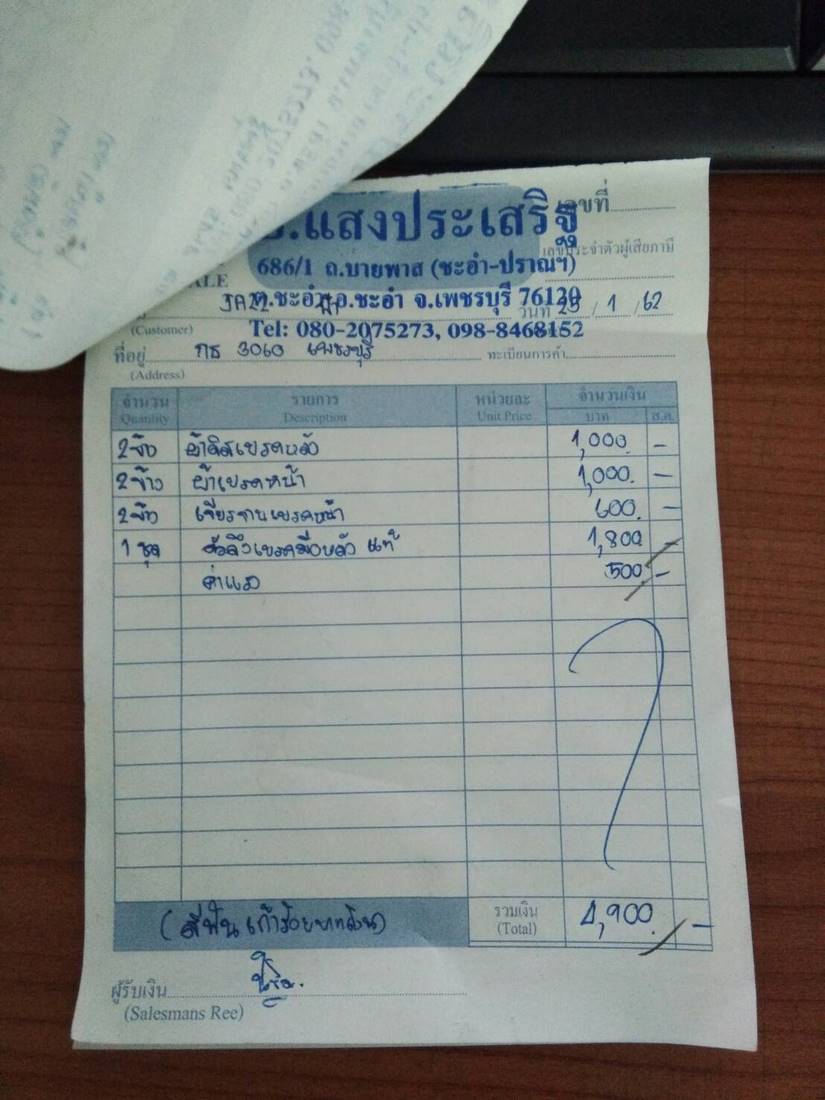 .แสงประเสริฐ
เลขที่
686/1 ถ.บายพาส (ชะอำ-ปราณฯ)
เลขประจำตัวผู้เสียภาษี
ALE
JAZZ
ต.ชะอำ อ.ชะอำ จ.เพชรบุรี 76120
วันที่ 25 / 1 / 62
(Customer)
Tel: 080-2075273, 098-8468152
ที่อยู่ กธ 3060 เพชรบุรี
ทะเบียนการค้า
(Address)
จำนวน รายการ หน่วยละ จำนวนเงิน
Quantity Description Unit Price บาท ส.ต.
2 ข้าง ผ้าดิสเบรคหลัง 1,000 -
2 ข้าง ผ้าเบรคหน้า 1,000 -
2 ข้าง เจียรจานเบรคหน้า 600 -
1 ชุด เบรคมือหลัง แท้ 1,800 -
ค่าแรง 500 -
(สี่พันเก้าร้อยบาทถ้วน) รวมเงิน 4,900 -
(Total)
ผู้รับเงิน
(Salesmans Ree)